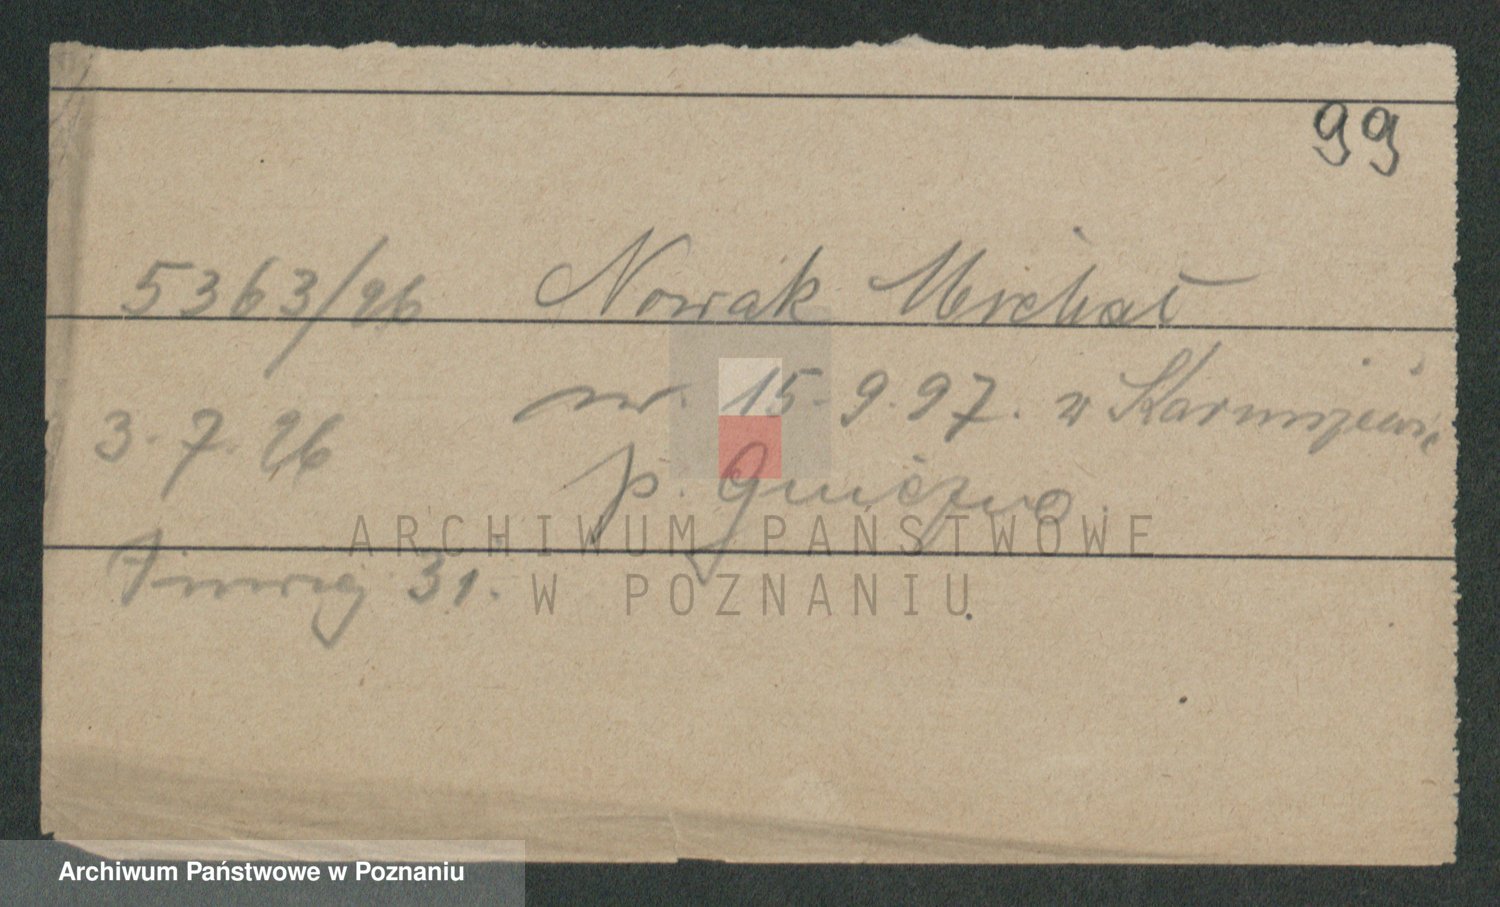 99
5363/26 Nowak Michał
3.7.26 ur. 15.9.97. w
p. Gniezno
31.
ARCHIWUM PAŃSTWOWE
W POZNANIU
Archiwum Państwowe w Poznaniu